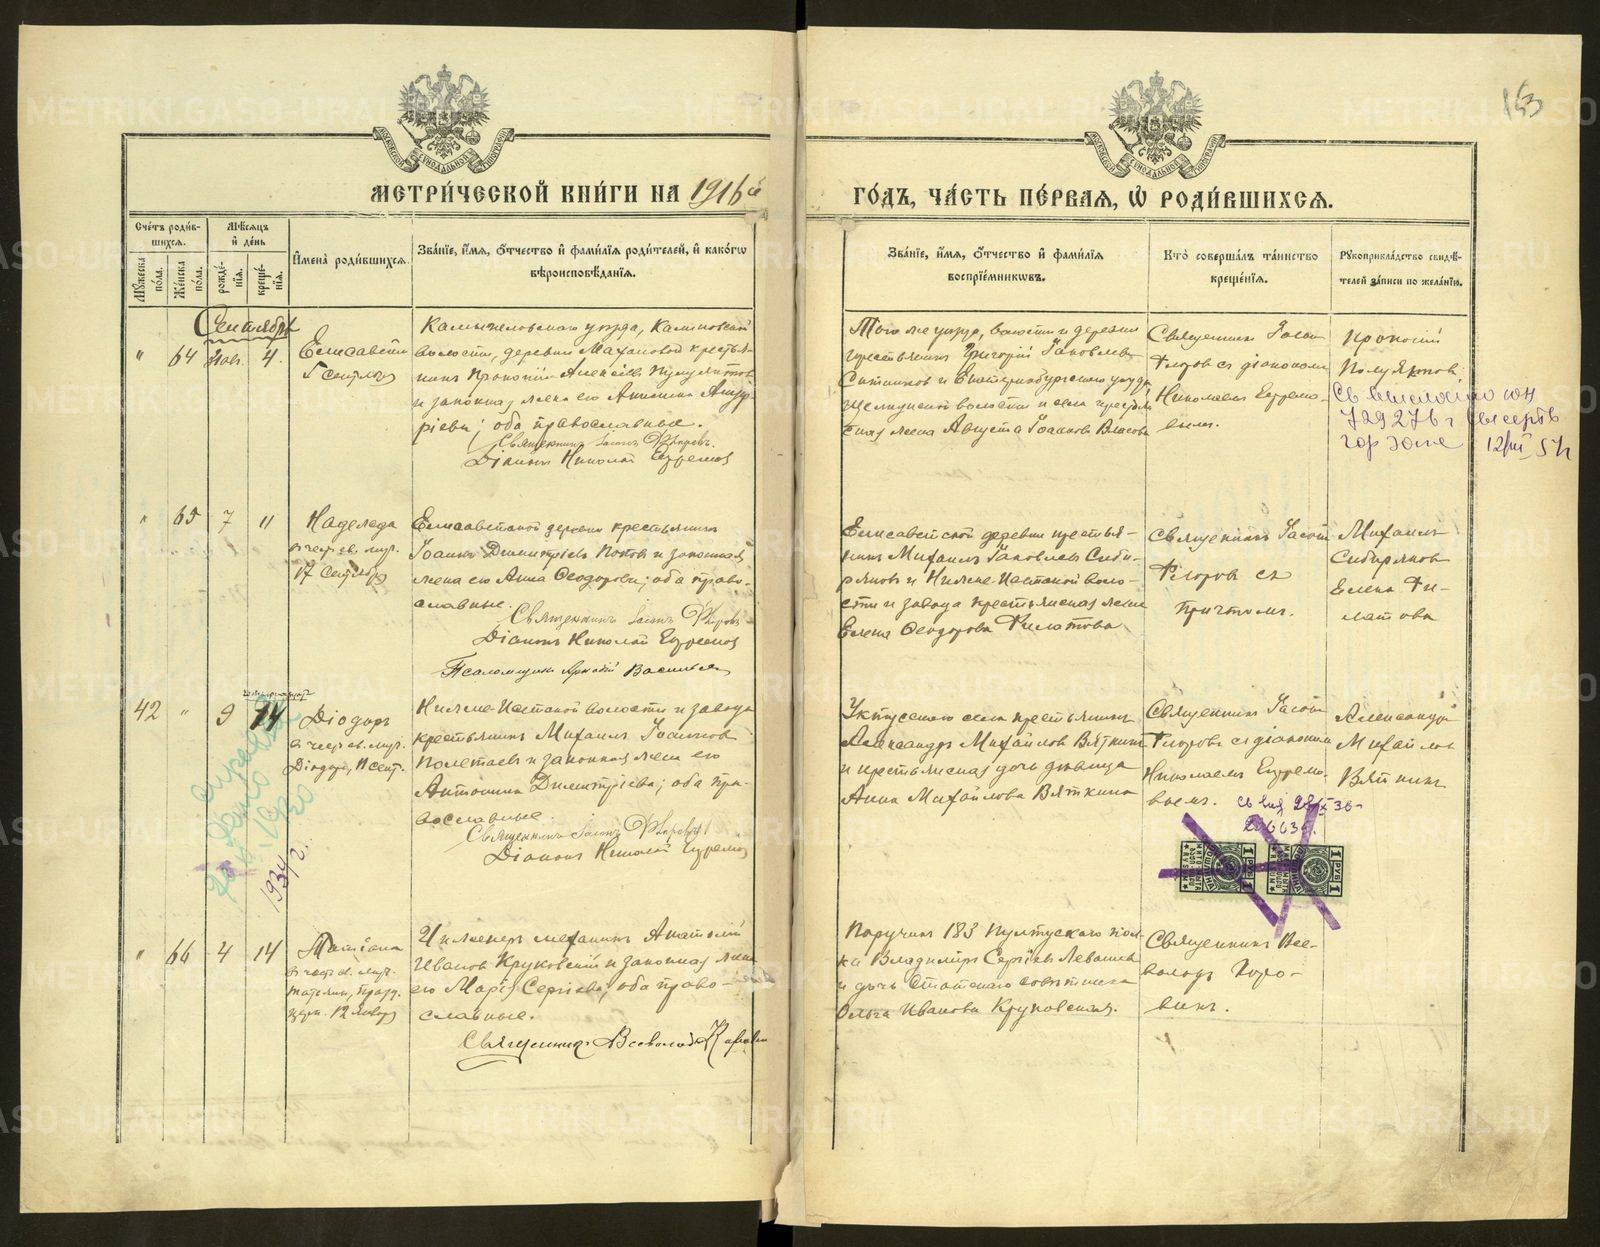 163
МЕТРИ́ЧЕСКОЙ КНИ́ГИ НА 1916й
ГО́ДЪ, ЧА́СТЬ ПЕ́РВАЯ, Ѡ РОДИ́ВШИХСЯ.
Сче́тъ роди́в-
шихся.
Му́жеска по́ла.
Же́нска по́ла.
Мѣ́сяцъ и де́нь
рожде́-
нїя.
креще́-
нїя.
Имена̀ роди́вшихся.
Зва́нїе, и́мя, о́тчество и фами́лїя роди́телей, и како́гѡ
вѣроисповѣ́данїя.
Зва́нїе, и́мя, о́тчество и фами́лїя
воспрїе́мникѡвъ.
Кто̀ соверша́лъ та́инство
креще́нїя.
Рꙋкоприкла́дство свидѣ́-
телей за́писи по жела́нїю.
Сентябрь
" 64 4.
Елисавета
5 сентября
Камышловскаго уѣзда, Калиновской
волости, деревни Махановой крестья-
нинъ Прокопій Алексѣевъ Полуяктовъ
и законная жена его Анисия Андр
ріева; оба православные.
Священникъ Іасонъ Флоровъ.
Діаконъ Николай Ефремов
Того же уѣзда, волости и деревни
крестьянинъ Григорій Іаковлевъ
Ситниковъ и Екатеринбургскаго уѣзда
волости и села крестьян
ская жена Августа Іоаннова Власова
Священник Іасон
Флоровъ съ діакономъ
Николаемъ Ефремо-
вымъ.
Прокопій
Полуяктовъ
72927
12/III 54
" 65 7 11
Надежда
въ честь св. муч.
17 Сентября
Елисаветской деревни крестьянинъ
Іоаннъ Димитріевъ Поповъ и законная
жена его Анна Ѳеодорова; оба право-
славные.
Священникъ Іасонъ Флоровъ
Діаконъ Николай Ефремов
Псаломщикъ Аркадій Васильев
Елисаветской деревни крестья-
нинъ Михаилъ Іаковлевъ Сиби-
ряковъ и Нижне-Исетской воло-
сти и завода крестьянская жена
Елена Ѳеодорова Филатова
Священникъ Іасон
Флоровъ съ
причтомъ.
Михаилъ
Сибиряковъ
Елена Фи-
латова
42 " 9 14
четырнадцат
Діодоръ
въ честь св. муч.
Діодора, 11 сент.
Нижне-Исетской волости и завода
крестьянинъ Михаилъ Іоанновъ
Полетаевъ и законная жена его
Антонина Димитріева; оба пра-
вославные.
Священникъ Іасонъ Флоровъ
Діаконъ Николай Ефремов
Уктусскаго села крестьянинъ
Александръ Михайловъ Вяткинъ
и крестьянская дочь дѣвица
Анна Михайлова Вяткина
Священникъ Іасон
Флоровъ съ діакономъ
Николаемъ Ефремо-
вымъ.
Александръ
Михайловъ
Вяткинъ
1930
1934 г.
1 РУБ 1
1 РУБ 1
" 66 4 14
Татіана
въ честь св. муч.
Татьяны, празд.
12 Января
Инженеръ механикъ Анатолій
Ивановъ Круковскій и законная жена
его Марія Сергіева; оба право-
славные.
Священникъ Всеволодъ
Поручикъ 183 Пултускаго пол-
ка Владиміръ Сергіевъ Левашевъ
и дочь Статскаго совѣтника
Ольга Иванова Круковская.
Священникъ Все-
володъ
METRIKI.GASO-URAL.RU